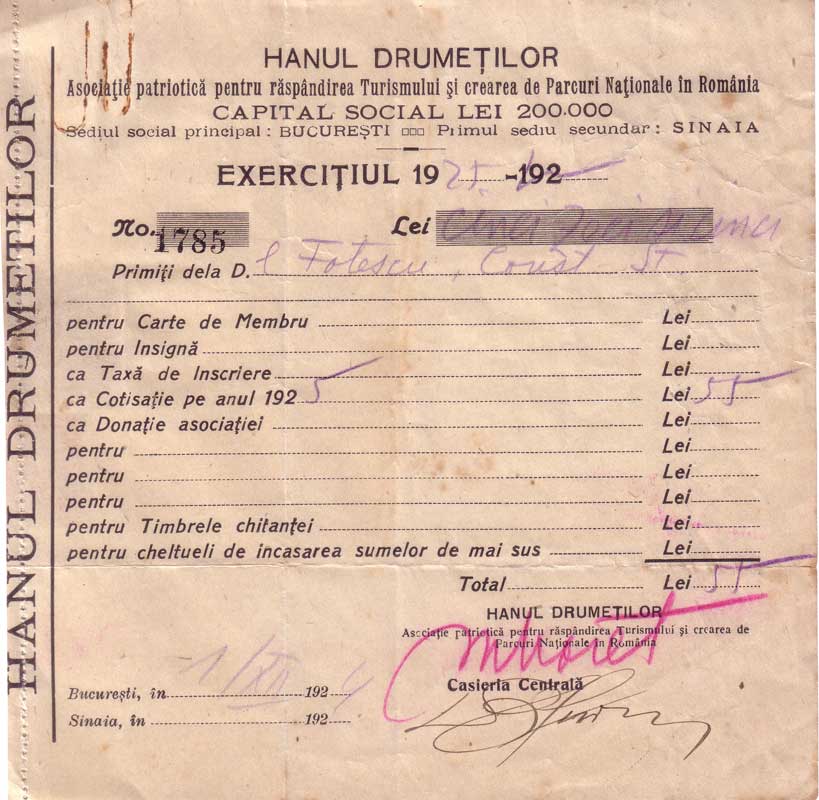 HANUL DRUMEȚILOR
HANUL DRUMEȚILOR
Asociație patriotică pentru răspândirea Turismului și crearea de Parcuri Naționale în România
CAPITAL SOCIAL LEI 200.000
Sediul social principal: BUCUREȘTI □□□ Primul sediu secundar: SINAIA
EXERCIȚIUL 1925-192
No. 1785 Lei cinci zeci și cinci
Primiți dela D. l Fotescu, Const. St.
pentru Carte de Membru Lei
pentru Insignă Lei
ca Taxă de Inscriere Lei
ca Cotisație pe anul 1925 Lei 55
ca Donație asociației Lei
pentru Lei
pentru Lei
pentru Lei
pentru Timbrele chitanței Lei
pentru cheltueli de incasarea sumelor de mai sus Lei
Total Lei 55
HANUL DRUMEȚILOR
Asociație patriotică pentru răspândirea Turismului și crearea de
Parcuri Naționale în România
Casieria Centrală
București, în 1/XII 192
Sinaia, în 192